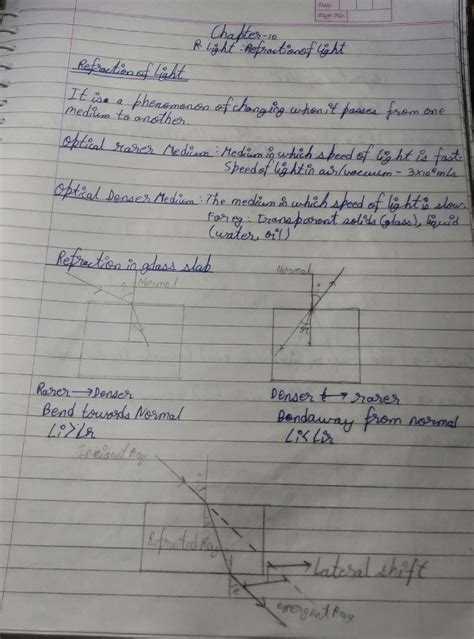 Date
Page No.
Chapter-10
R. Light : Refraction of light
Refraction of light
It is a phenomenon of changing when it passes from one
medium to another.
Optical rarer Medium : Medium in which speed of light is fast.
Speed of light in air/vacuum - 3x10⁸ m/s
Optical Denser Medium : The medium in which speed of light is slow.
For eg : transparent solids (glass), liquid
(water, oil)
Refraction in glass slab
i Normal
r
Normal
i
r
Rarer → Denser
Bend towards Normal
∠i>∠r
Denser → rarer
Bend away from normal
∠i<∠r
Incident Ray
i
r
Refracted Ray
Lateral shift
e
emergent Ray